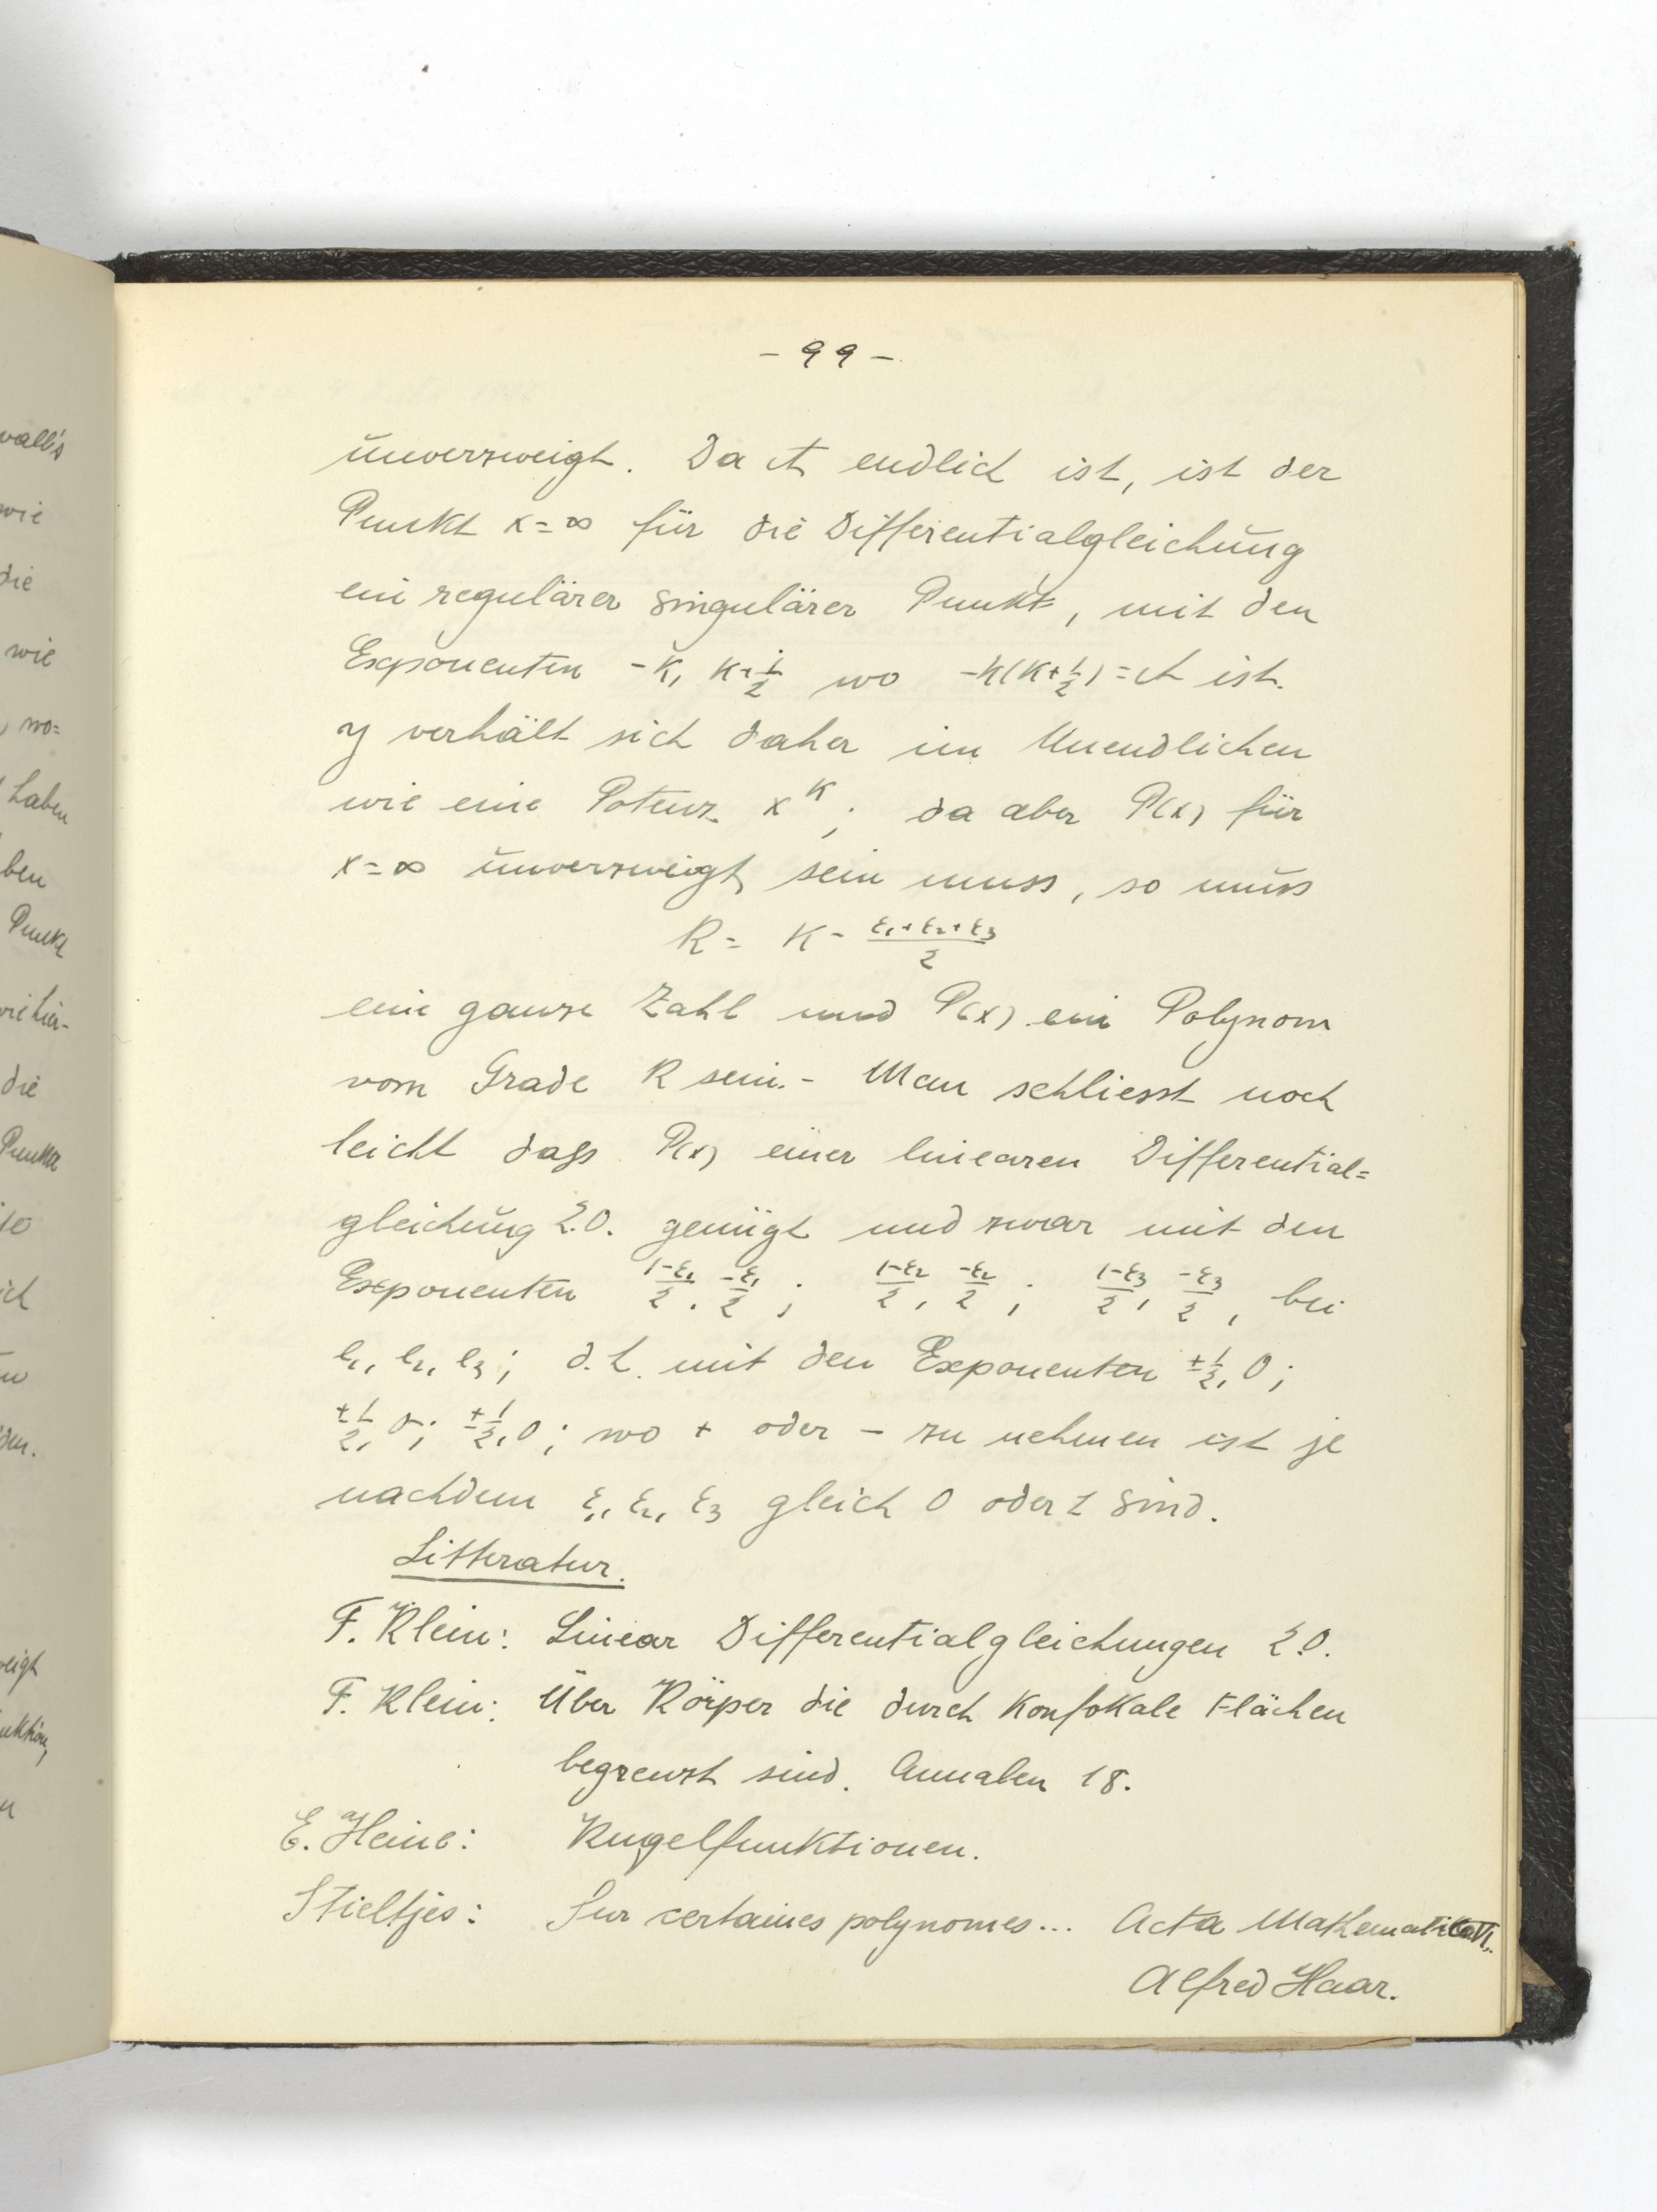 - 99 -
unverzweigt. Da A endlich ist, ist der
Punkt x = ∞ für die Differentialgleichung
ein regulärer singulärer Punkt, mit den
Exponenten -K, K+1/2 wo -K(K+1/2) = A ist.
y verhält sich daher im Unendlichen
wie eine Potenz x^K; da aber P(x) für
x = ∞ unverzweigt sein muss, so muss
R = K - (ε₁+ε₂+ε₃)/2
eine ganze Zahl und P(x) ein Polynom
vom Grade R sein. - Man schliesst noch
leicht dass P(x) einer linearen Differential=
gleichung 2.O. genügt und zwar mit den
Exponenten (1-ε₁)/2, -ε₁/2; (1-ε₂)/2, -ε₂/2; (1-ε₃)/2, -ε₃/2, bei
e₁, e₂, e₃; d.h. mit den Exponenten ±1/2, 0;
±1/2, 0; ±1/2, 0; wo + oder - zu nehmen ist je
nachdem ε₁, ε₂, ε₃ gleich 0 oder 1 sind.
Litteratur.
F. Klein: Linear Differentialgleichungen 2.O.
F. Klein: Über Körper die durch Konfokale Flächen
begrenzt sind. Annalen 18.
E. Heine: Kugelfunktionen.
Stieltjes: Sur certaines polynomes... Acta Mathematika
Alfred Haar.
vall's
wie
die
wie
wo=
haben
ben
Punkt
wie hier-
die
Punkte
den.